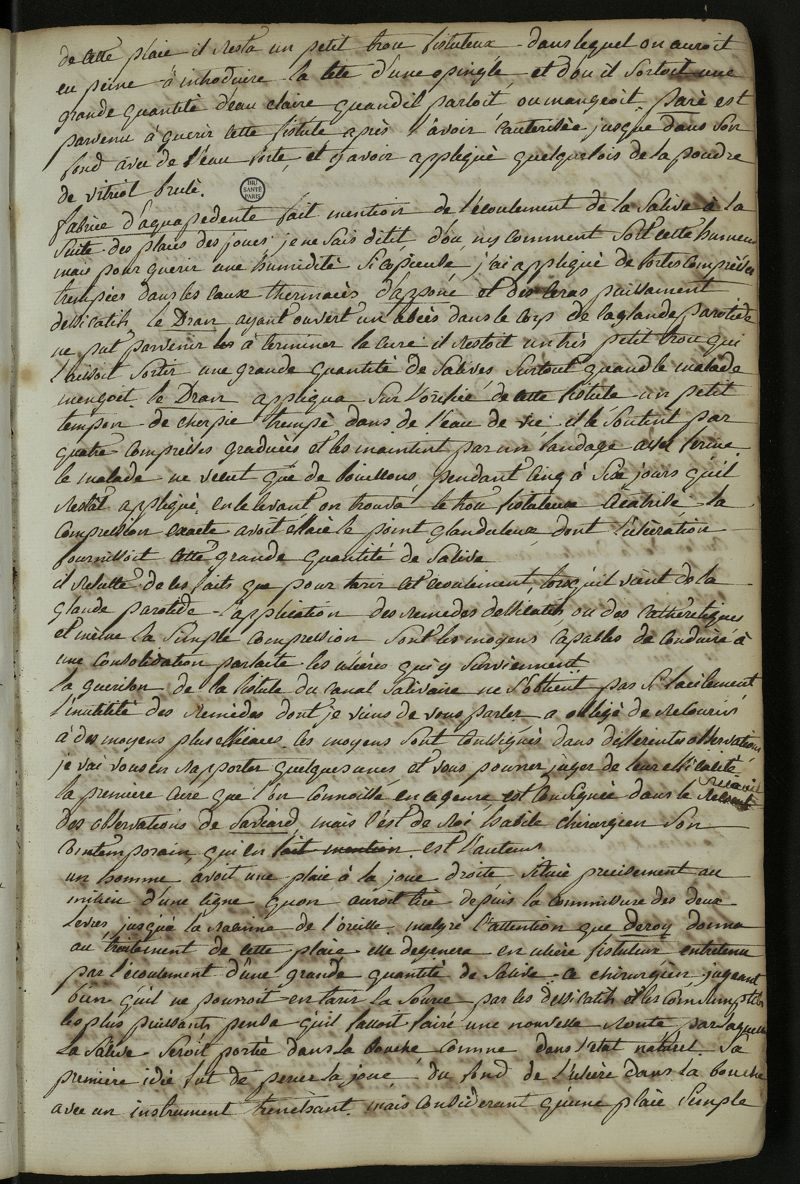 de cette plaie il resta un petit trou fistuleux dans lequel on auroit
eu peine à introduire la tete d'une epingle et d'ou il sortoit une
grande quantité d'eau claire quand il parloit ou mangeoit. parè est
parvenu à guerir cette fistule après l'avoir cauterisée jusque dans son
fond avec de l'eau forte, et y avoir appliquè quelquefois de la poudre
de vitriol brulé.
BIU SANTÉ PARIS
fabrice d'aquapedente fait mention de l'écoulement de la Salive à la
Suite des plaies des joues; je ne sais dit il, d'ou, ny comment sort cette humeur
mais pour guerir une humidité Si copieuse j'ai appliqué de fortes compresses
trempées dans les eaux thermales d'apponé et des ceras puissament
dessicatifs le Dran ayant ouvert un abcès dans le corp de la glande parotide
ne put parvenir à terminer la cure il restoit un très petit trou qui
laissoit Sortir une grande quantité de Salives Surtout quand le malade
mengoit. le Dran appliqua Sur l'orifice de cette fistule un petit
tempon de charpie trempé dans de l'eau de vie il le Soutint par
quatre compresses graduées et les maintint par un bandage assés ferme.
le malade ne vecut que de bouillons pendant cinq à Six jours qu'il
resta appliqué, en le levant on trouva le trou fistuleux cicatrisé, la
Compression exacte avoit affaissé le point glanduleux dont l'ulcération
fournissoit cette grande quantité de Salive
il resulte de ces faits que pour tarir cet écoulement, lorsqu'il vient de la
glande parotide l'application des remedes dessicatifs ou des cathérétiques
et même la Simple compression sont les moyens capables de conduire à
une consolidation parfaite les ulcères qui y Surviennent
la guerison de la fistule du canal Salivaire ne S'obtient pas Si facilement
l'inutilité des remèdes dont je viens de vous parler a obligé de recourir
à des moyens plus efficaces. ces moyens sont consignés dans differentes observations
je vai vous en rapporter quelques unes et vous pourrez juger de leur efficacité
la première cure que l'on connoisse en ce genre est consignée dans le recueil
des observations de Saviard, mais c'est de Roi habile chirurgien Son
Contemporain, qui en fait mention est l'auteur
un homme avoit une plaie à la joue droite située precisement au
milieu d'une ligne qu'on auroit tiré depuis la commissure des deux
levres jusqu'à la racine de l'oreille. malgré l'attention que deroy donna
au traitement de cette plaie elle degenera en ulcère fistuleux entretenu
par l'écoulement d'une grande quantité de Salive. ce chirurgien, jugeant
bien qu'il ne pourroit en tarir la Source par les dessicatifs et les consumptifs
les plus puissants pensa qu'il falloit faire une nouvelle route par laquelle
la Salive Seroit portée dans la bouche comme dans l'etat naturel. Sa
première idée fut de percer la joue du fond de l'ulcère dans la bouche
avec un instrument trenchant. mais considerant qu'une plaie Simple